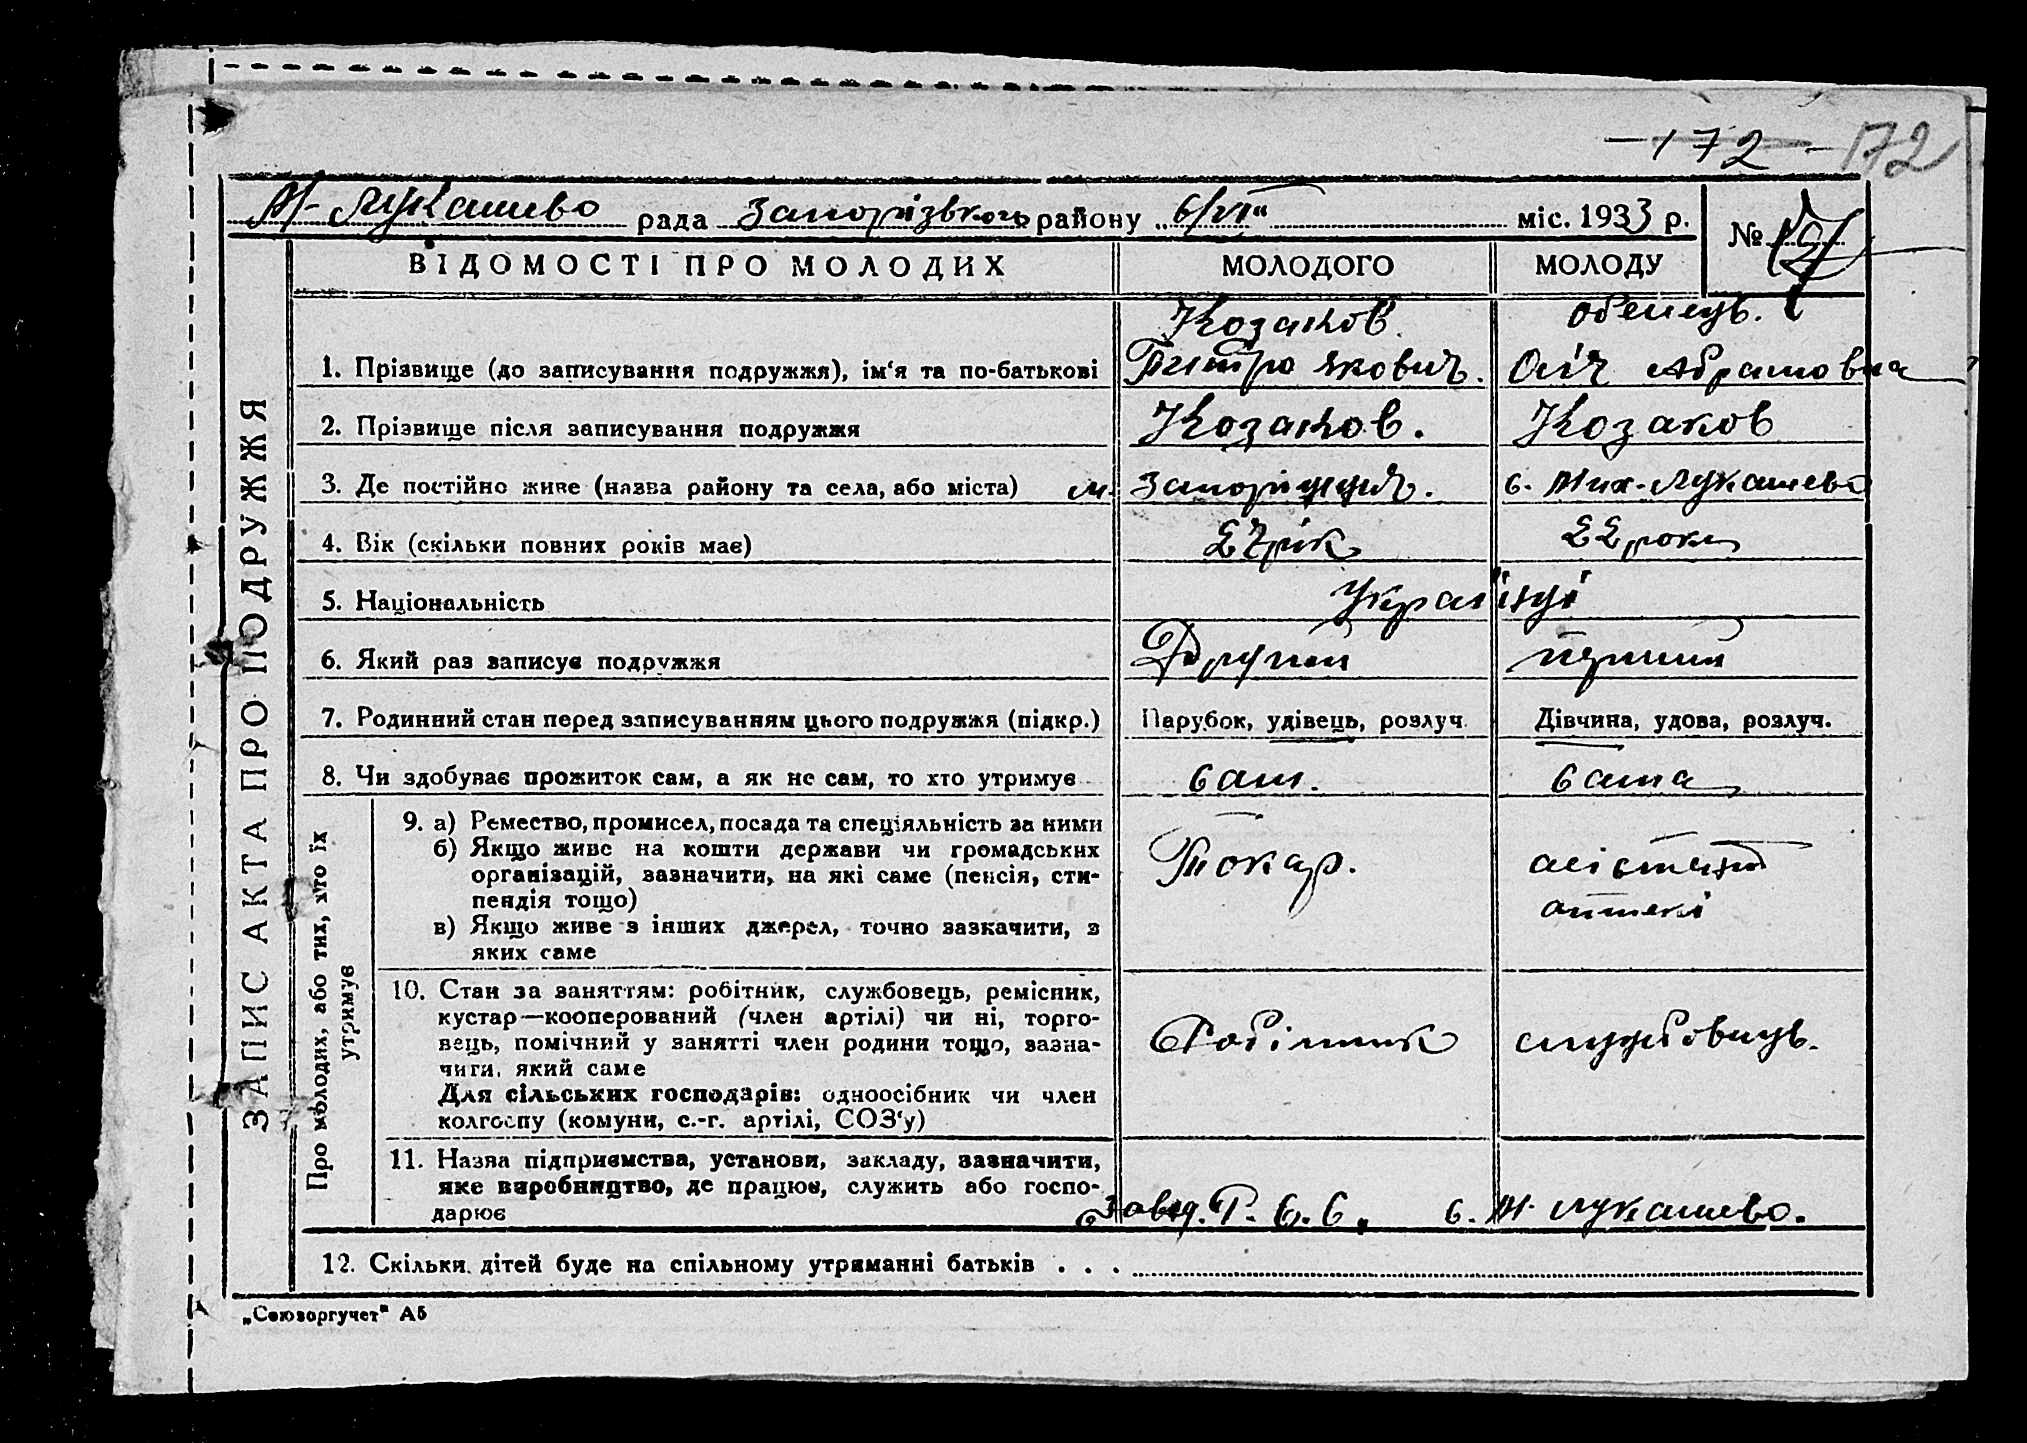 172 - 172
М-Лукашево рада Запорізького району „6/VI“ міс. 1933 р. №
ВІДОМОСТІ ПРО МОЛОДИХ МОЛОДОГО МОЛОДУ
Козаков
1. Прізвище (до записування подружжя), ім‘я та по-батькові Петро Якович. Абрамовна
2. Прізвище після записування подружжя Козаков. Козаков
3. Де постійно живе (назва району та села, або міста) м. Запоріжжя. с. Мих-Лукашево
4. Вік (скільки повних років має) 27 рік 22 роки
5. Національність Українці
6. Який раз записує подружжя Другий перший
7. Родинний стан перед записуванням цього подружжя (підкр.) Парубок, удівець, розлуч. Дівчина, удова, розлуч.
8. Чи здобуває прожиток сам, а як не сам, то хто утримує сам. сама
ЗАПИС АКТА ПРО ПОДРУЖЖЯ
Про молодих, або тих, хто їх
утримує
9. а) Ремество, промисел, посада та спеціяльність за ними
б) Якщо живе на кошти держави чи громадських Токар. асістент
організацій, зазначити, на які саме (пенсія, сти-
пендія тощо) аптекі
в) Якщо живе з інших джерел, точно зазначити, з
яких саме
10. Стан за заняттям: робітник, службовець, ремісник,
кустар—кооперований (член артілі) чи ні, торго-
вець, помічний у занятті член родини тощо, зазна- Робітник службовець.
чити, який саме
Для сільських господарів: одноосібник чи член
колгоспу (комуни, с.-г. артілі, СОЗ‘у)
11. Назва підприємства, установи, закладу, зазначити,
яке виробництво, де працює, служить або госпо-
дарює Завод. с. М. Лукашево.
12. Скільки дітей буде на спільному утриманні батьків . . .
„Союзоргучет" А5